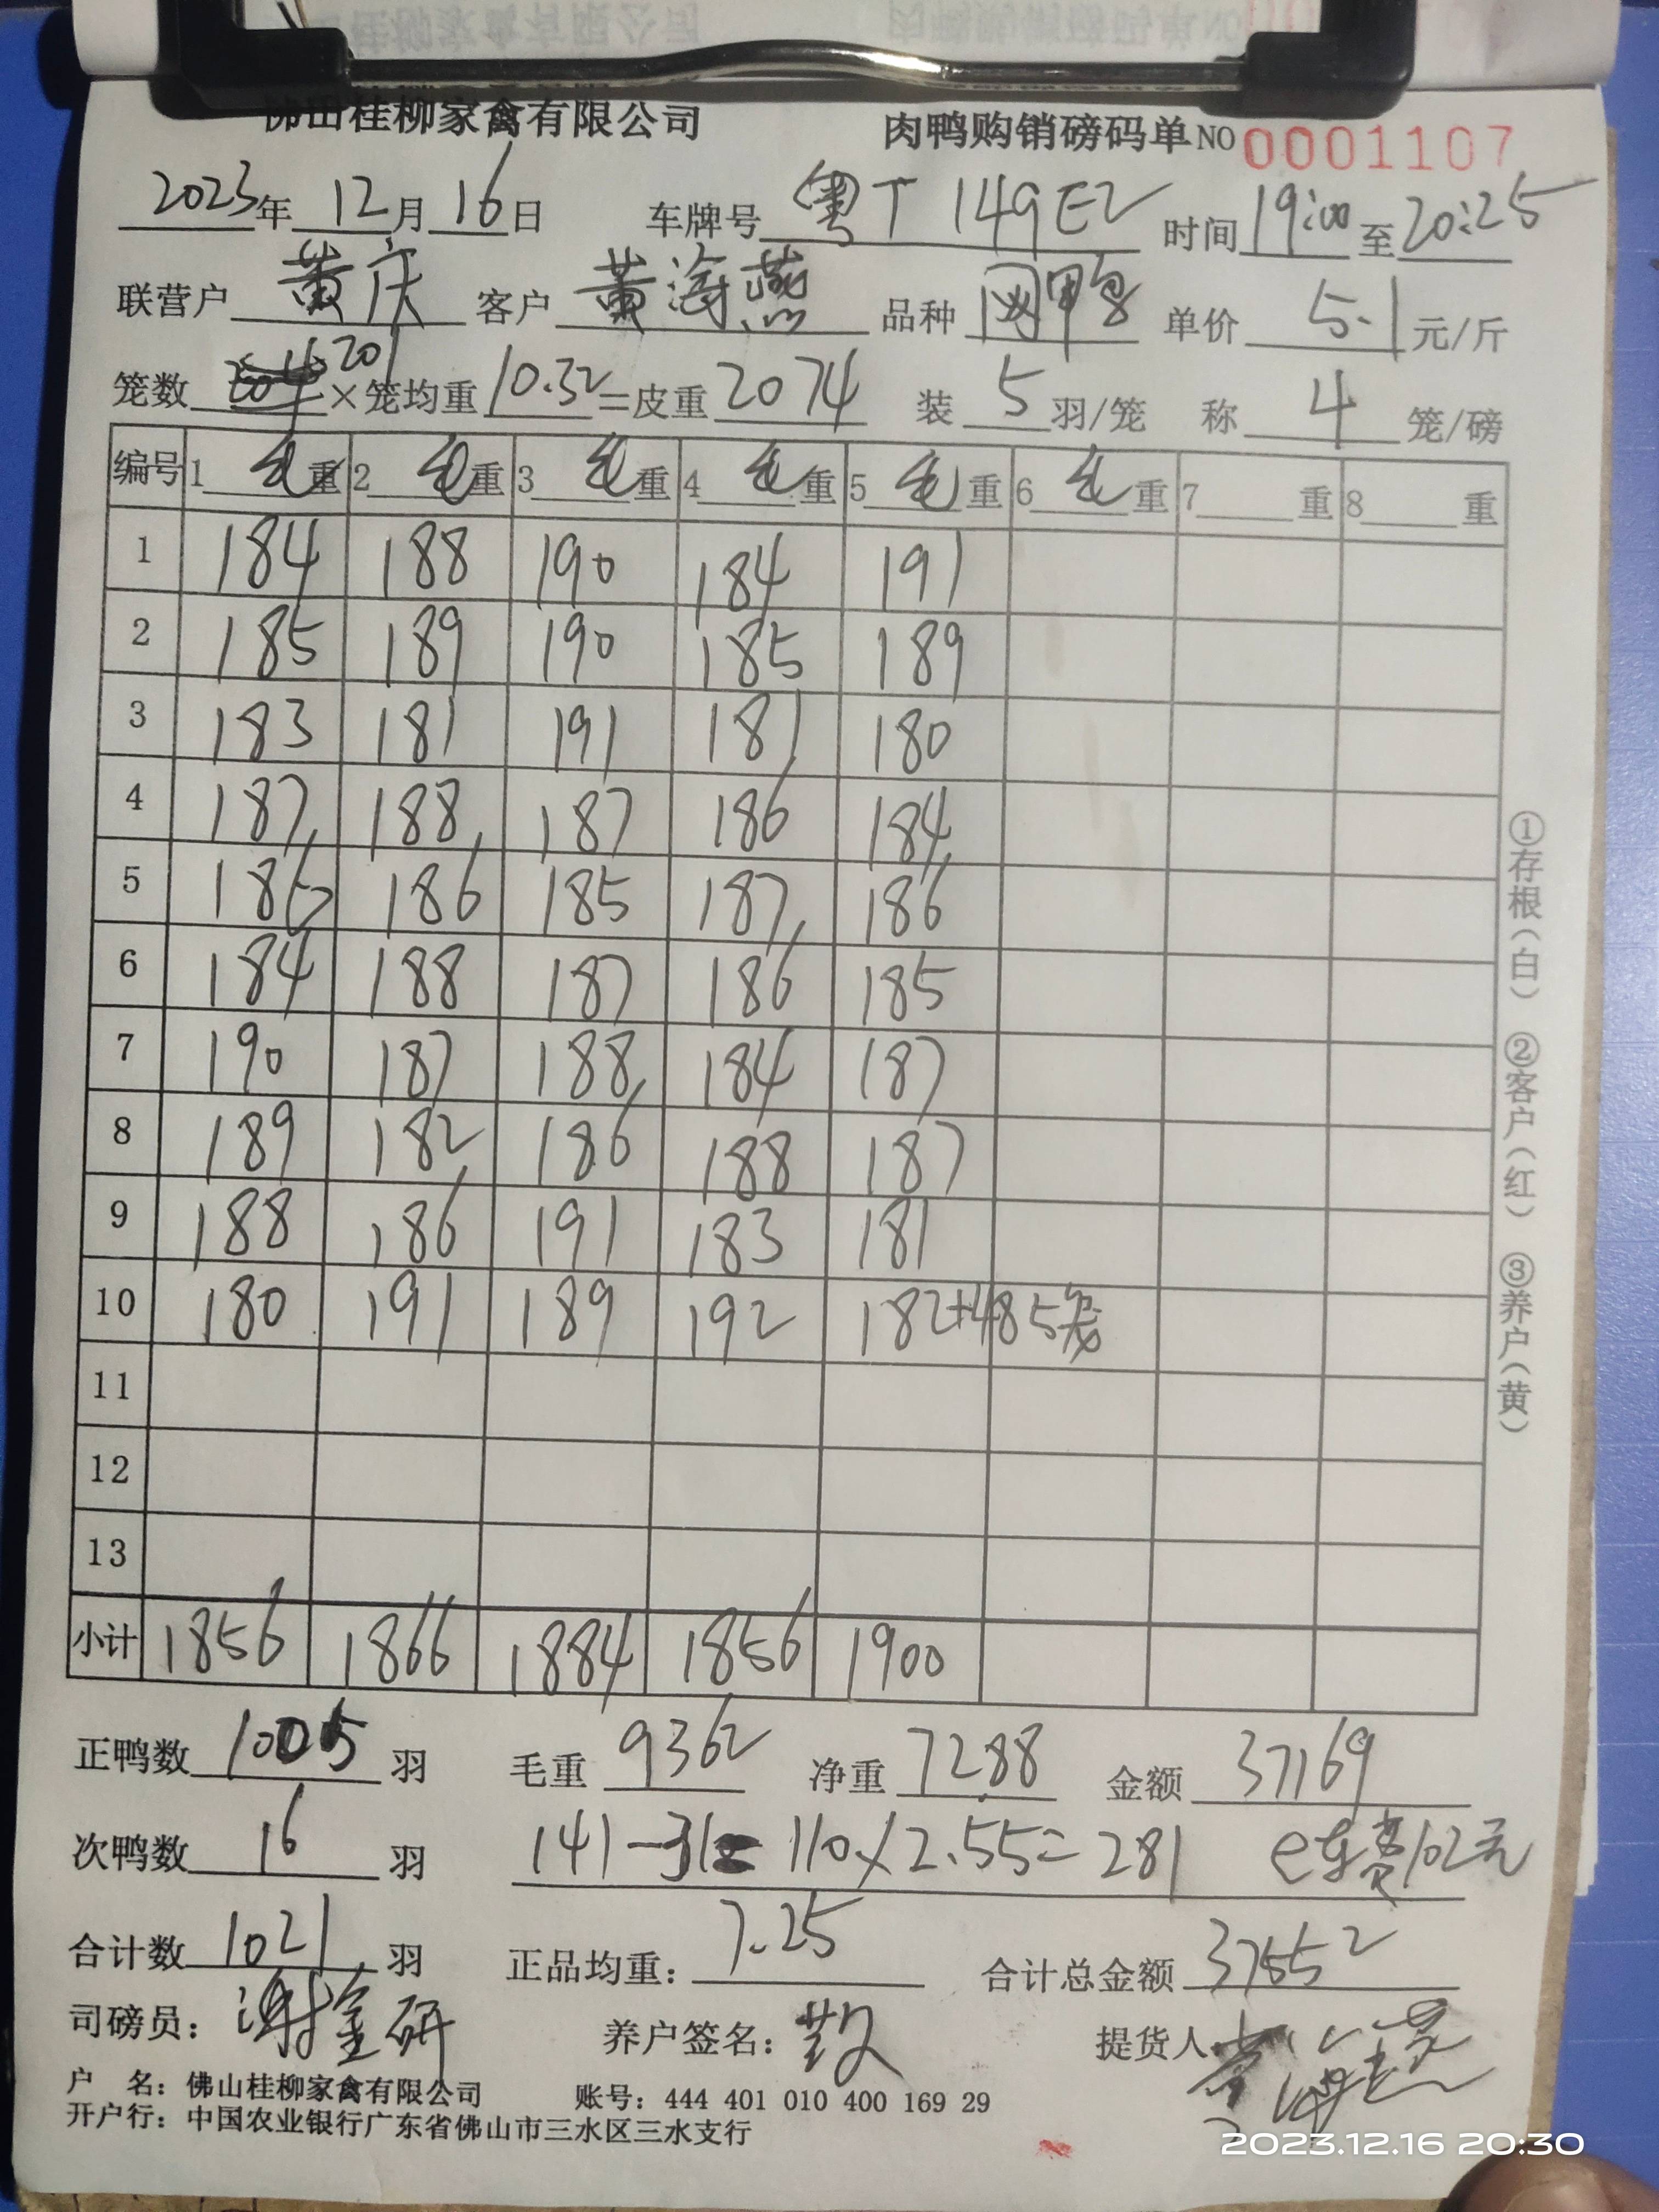 佛山桂柳家禽有限公司 肉鸭购销磅码单 NO 0001107
2023年 12月 16日 车牌号 粤T 149EZ 时间 19:00 至 20:25
联营户 黄庆 客户 黄海燕 品种 网鸭 单价 5.1 元/斤
笼数 201 ×笼均重 10.32 =皮重 2074 装 5 羽/笼 称 4 笼/磅
编号 1 毛重 2 毛重 3 毛重 4 毛重 5 毛重 6 毛重 7 重 8 重
1 184 188 190 184 191
2 185 189 190 185 189
3 183 181 191 181 180
4 187 188 187 186 184
5 186 186 185 187 186
6 184 188 187 186 185
7 190 187 188 184 187
8 189 182 186 188 187
9 188 186 191 183 181
10 180 191 189 192 182+48 5
11
12
13
小计 1856 1866 1884 1856 1900
正鸭数 1005 羽 毛重 9362 净重 7288 金额 37169
次鸭数 16 羽 141-31=110×2.55=281 e车费102元
合计数 1021 羽 正品均重: 7.25 合计总金额 37552
司磅员: 谢金研 养户签名: 提货人 黄海燕
户 名: 佛山桂柳家禽有限公司 账号: 444 401 010 400 169 29
开户行: 中国农业银行广东省佛山市三水区三水支行
①存根(白) ②客户(红) ③养户(黄)
2023.12.16 20:30